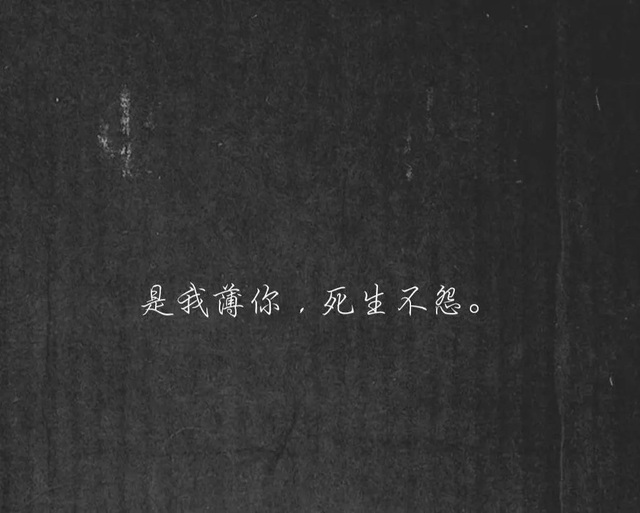 是我薄你，死生不怨。